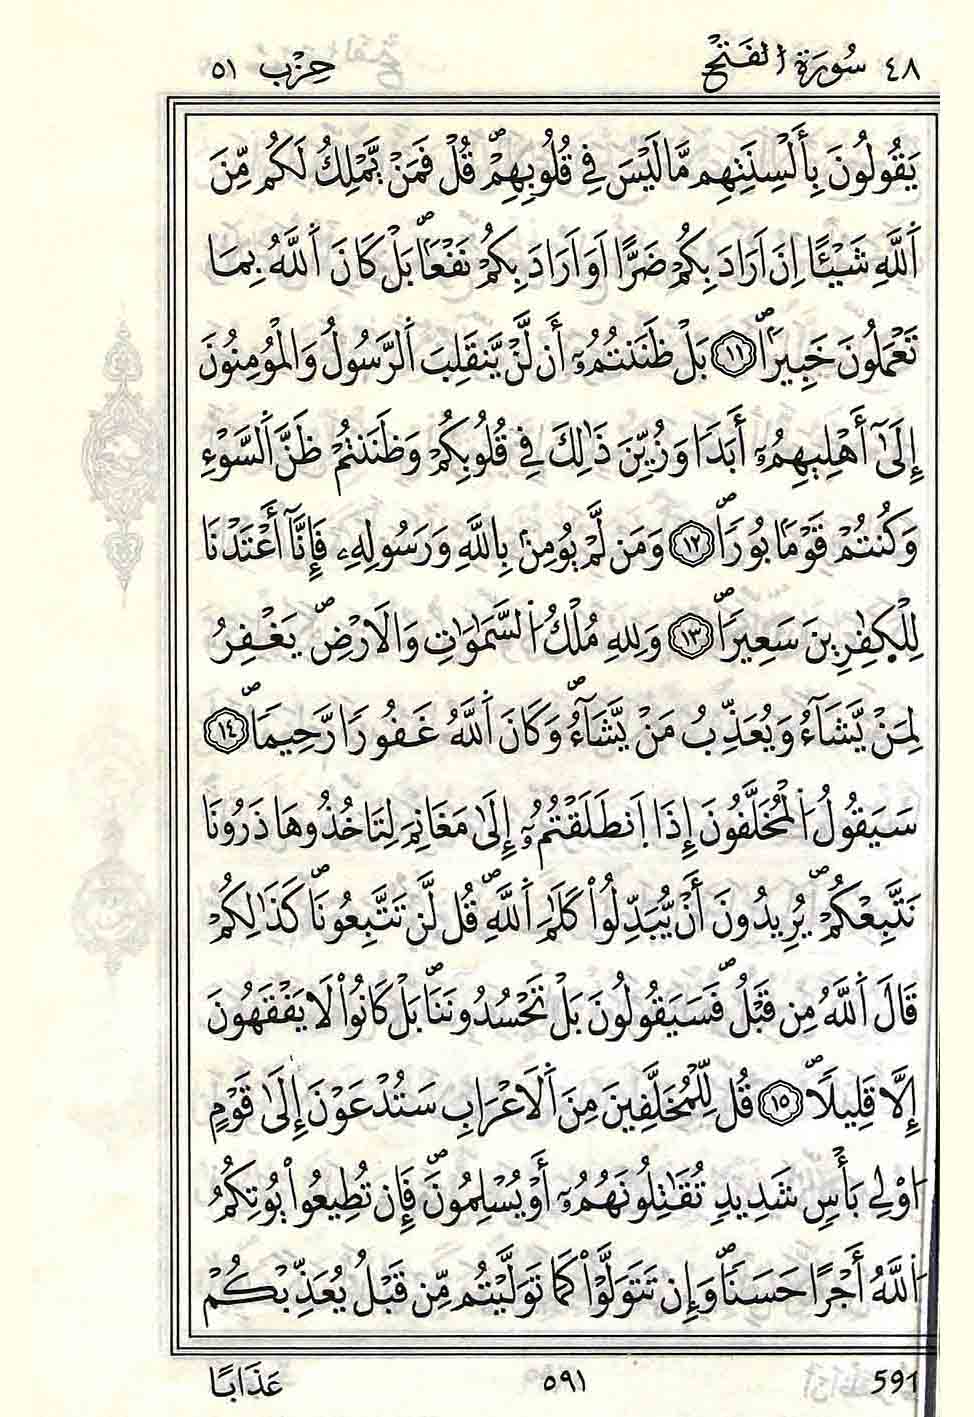 ٤٨ سُورَةُ الفَتْحِ حِزْب ٥١
يَقُولُونَ بِأَلْسِنَتِهِم مَّا لَيْسَ فِي قُلُوبِهِمْۖ قُلْ فَمَنْ يَّمْلِكُ لَكُم مِّنَ
اَ۬للَّهِ شَيْـًٔا اِنَ اَرَادَ بِكُمْ ضَرًّا اَوَ اَرَادَ بِكُمْ نَفْعَاۢۖ بَلْ كَانَ اَ۬للَّهُ بِمَا
تَعْمَلُونَ خَبِيراٗۖ ١١ بَلْ ظَنَنتُمُۥٓ أَن لَّنْ يَّنقَلِبَ اَ۬لرَّسُولُ وَالْمُومِنُونَ
إِلَىٰٓ أَهْلِيهِمُۥٓ أَبَداٗ وَزُيِّنَ ذَٰلِكَ فِي قُلُوبِكُمْ وَظَنَنتُمْ ظَنَّ اَ۬لسَّوْءِ
وَكُنتُمْ قَوْماَۢ بُوراٗۖ ١٢ وَمَن لَّمْ يُومِنۢ بِاللَّهِ وَرَسُولِهِۦ فَإِنَّآ أَعْتَدْنَا
لِلْكٰفِرِينَ سَعِيراٗۖ ١٣ وَلِلهِ مُلْكُ اُ۬لسَّمَٰوَٰتِ وَالَارْضِۖ يَغْفِرُ
لِمَنْ يَّشَآءُ وَيُعَذِّبُ مَنْ يَّشَآءُۖ وَكَانَ اَ۬للَّهُ غَفُوراٗ رَّحِيماٗۖ ١٤
سَيَقُولُ اُ۬لْمُخَلَّفُونَ إِذَا اَ۪نطَلَقْتُمُۥٓ إِلَىٰ مَغَانِمَ لِتَاخُذُوهَا ذَرُونَا
نَتَّبِعْكُمْۖ يُرِيدُونَ أَنْ يُّبَدِّلُواْ كَلَٰمَ اَ۬للَّهِۖ قُل لَّن تَتَّبِعُونَاۖ كَذَٰلِكُمْ
قَالَ اَ۬للَّهُ مِن قَبْلُۖ فَسَيَقُولُونَ بَلْ تَحْسُدُونَنَاۖ بَلْ كَانُواْ لَا يَفْقَهُونَ
إِلَّا قَلِيلاٗۖ ١٥ قُل لِّلْمُخَلَّفِينَ مِنَ اَ۬لَاعْرَابِ سَتُدْعَوْنَ إِلَىٰ قَوْمٍ
اُوْلِي بَأْسٖ شَدِيدٖ تُقَٰتِلُونَهُمُۥٓ أَوْ يُسْلِمُونَۖ فَإِن تُطِيعُواْ يُوتِكُمُ
اُ۬للَّهُ أَجْراً حَسَناٗۖ وَإِن تَتَوَلَّوْاْ كَمَا تَوَلَّيْتُم مِّن قَبْلُ يُعَذِّبْكُمْ
591 ٥٩١ عَذَابًا